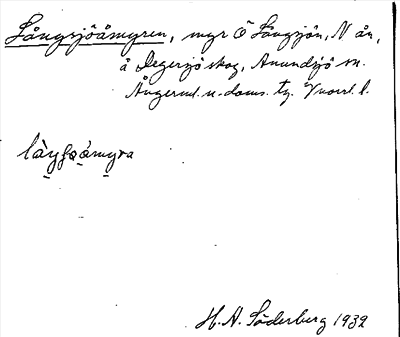 Långsjöåmyren, myr Ö Långsjön, N ån,
å Degersjö skog, Anundsjö sn.
Ångerml. s. doms. tg. Västerl. l.
làŋʃøámyra
H. A. Söderberg 1932